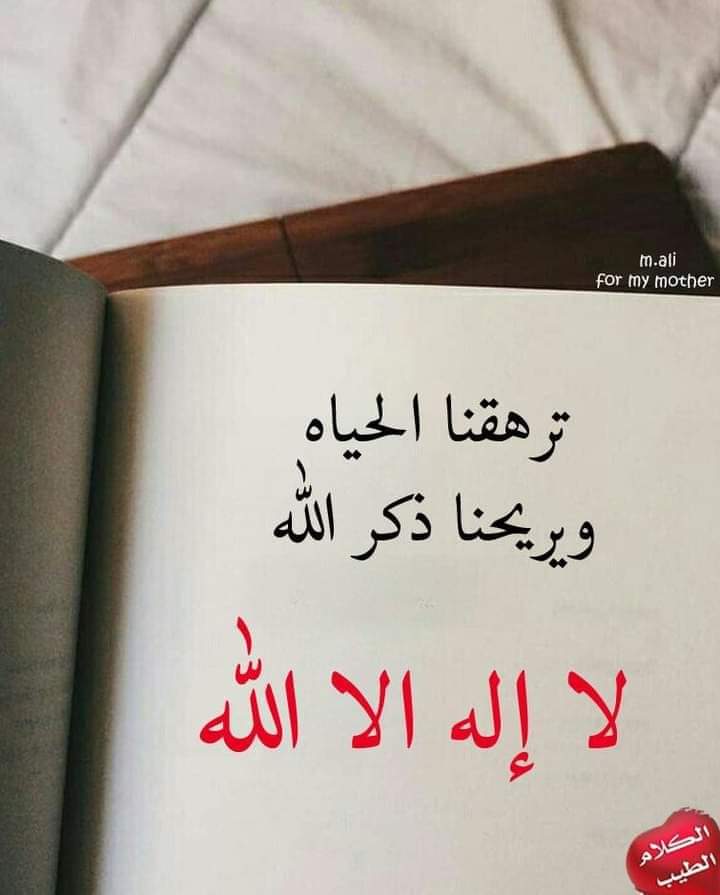 m.ali
for my mother
ترهقنا الحياه
ويريحنا ذكر الله
لا إله الا الله
الكلام
الطيب